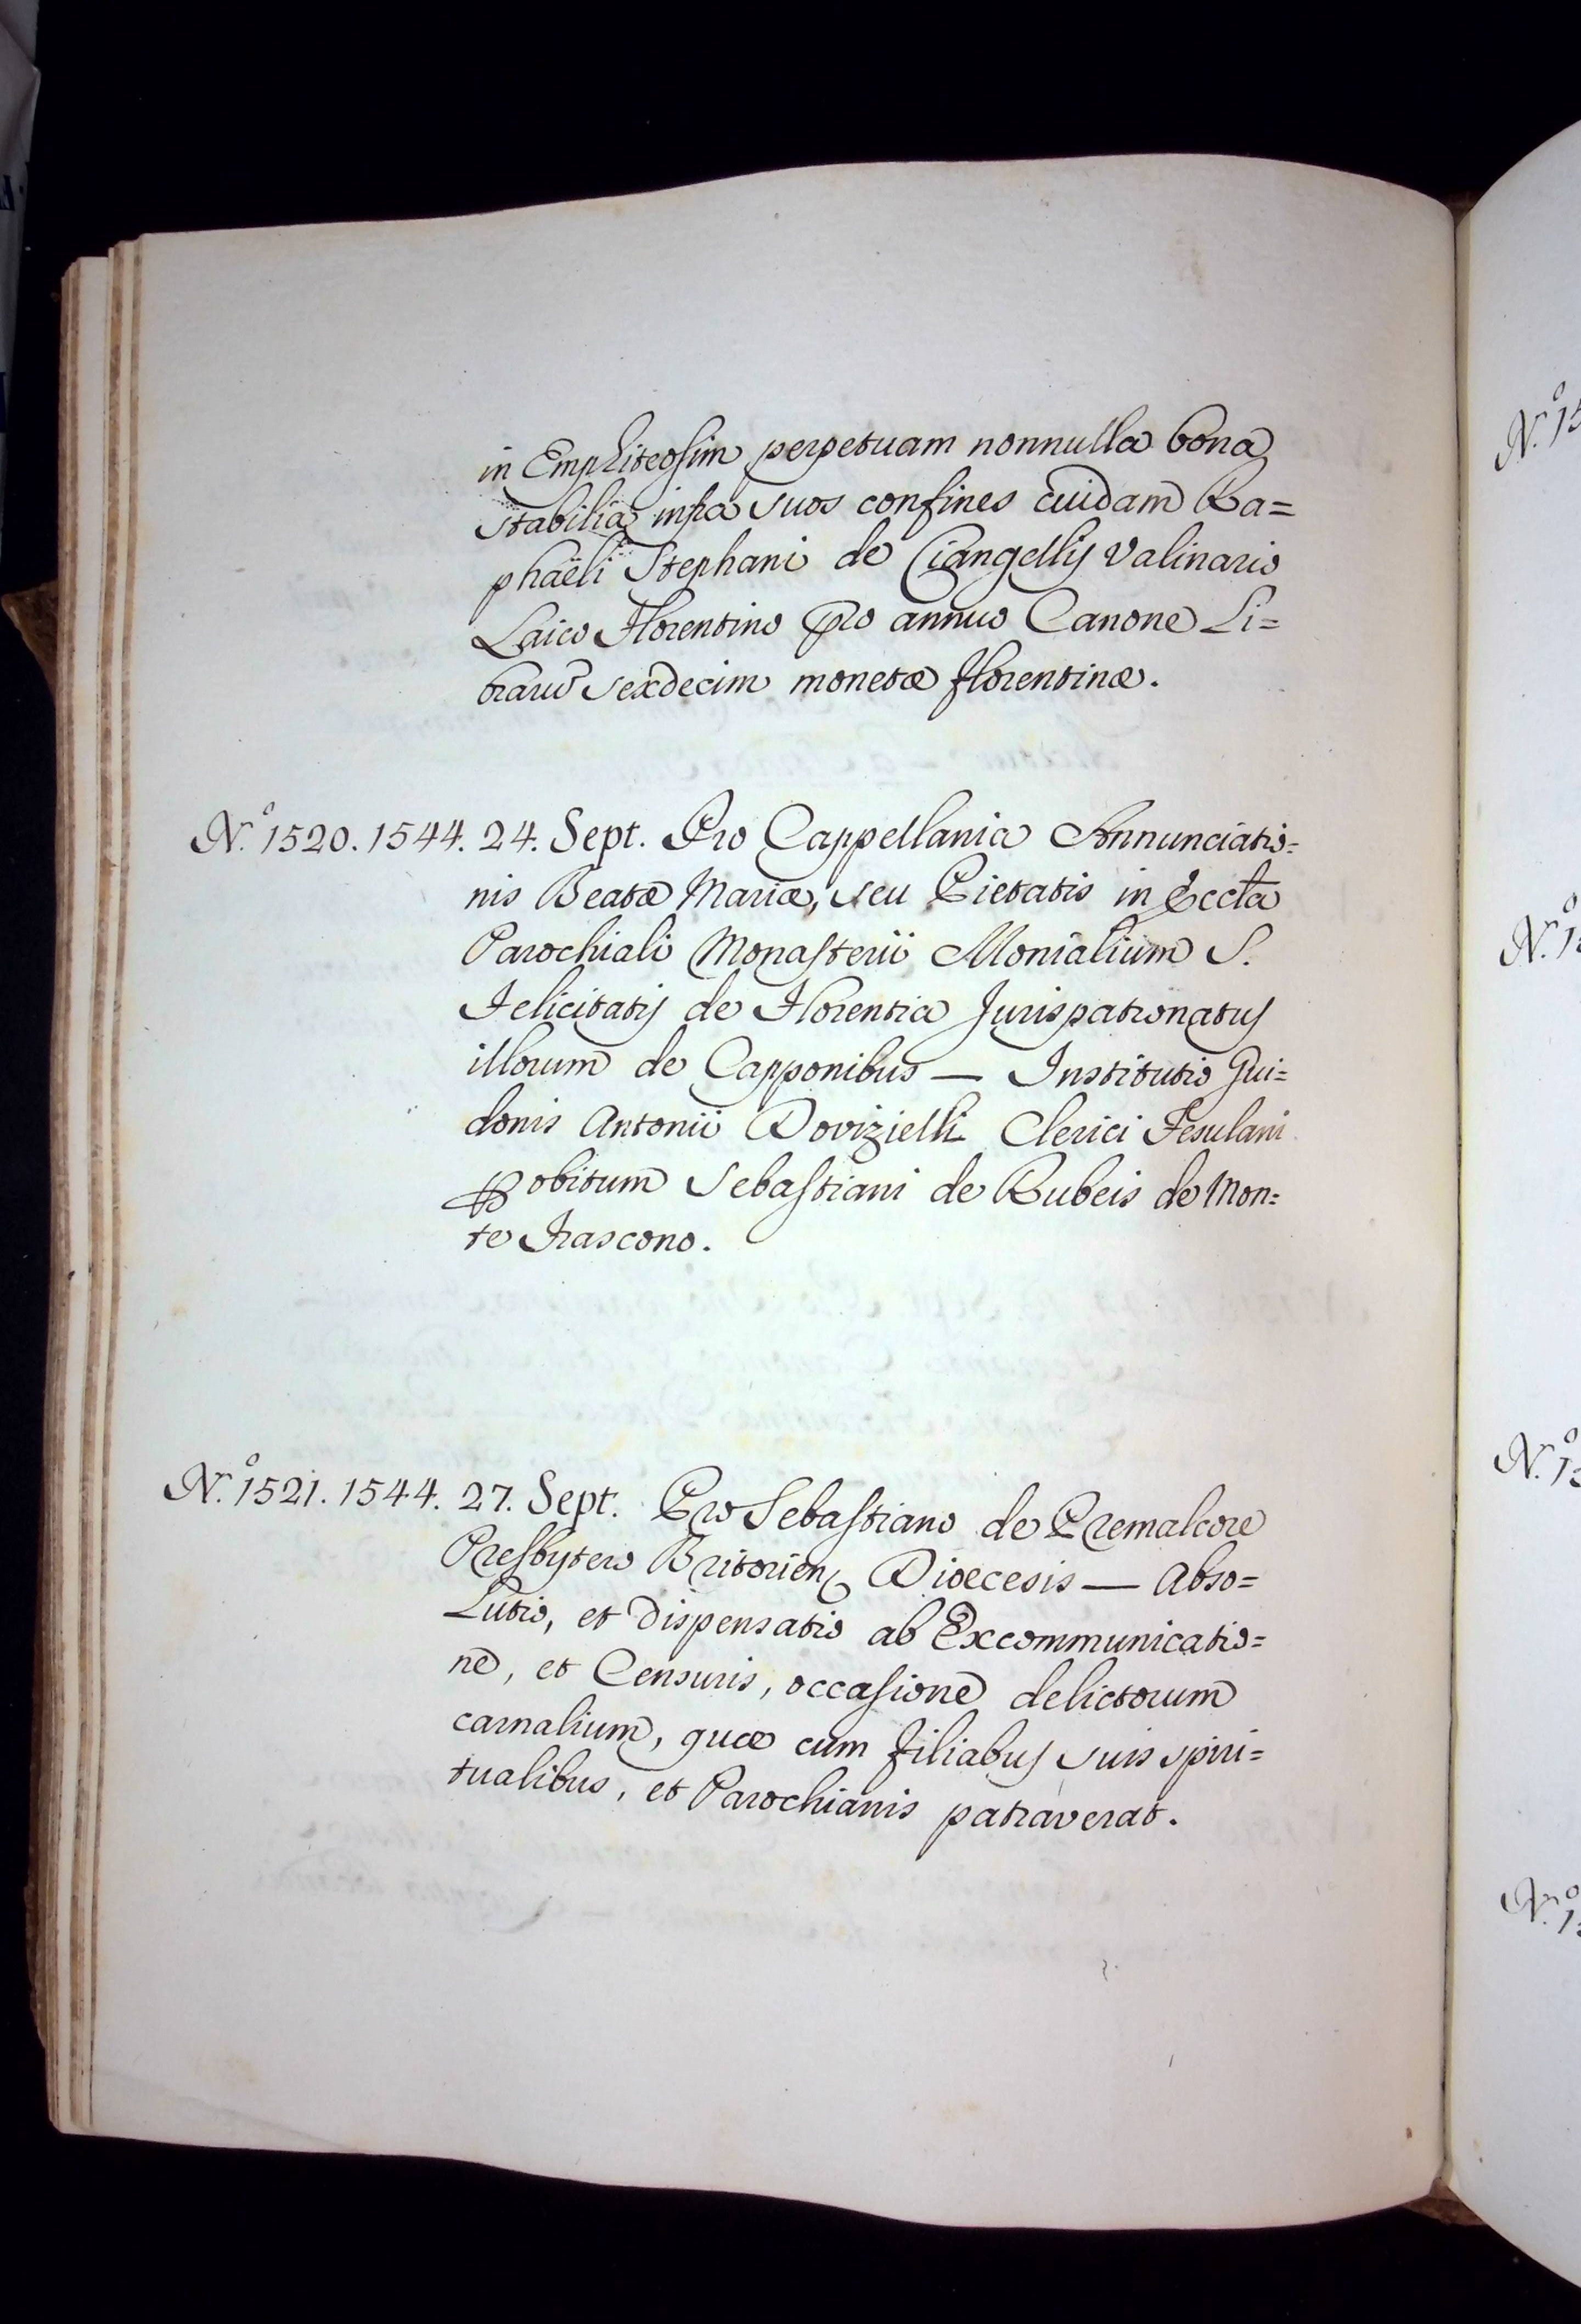 in Emphiteosim perpetuam nonnulla bona
stabilia infra suos confines cuidam Ra=
phaëli Stephani de Ciangellis Valinario
Laico Florentino pro annuo Canone Li=
brarū sexdecim monetæ florentinæ.
N.º 1520. 1544. 24. Sept. Pro Cappellania Annunciatio=
nis Beatæ Mariæ, seu Pietatis in Eccła
Parochiali Monasterii Monialium S.
Felicitatis de Florentia Jurispatronatus
illorum de Capponibus — Institutio Gui=
donis Antonii Dovizielli Clerici Fesulani
obitum Sebastiani de Rubeis de Mon=
te Frascono.
N.º 1521. 1544. 27. Sept. Pro Sebastiano de Premalcore
Presbytero Britorien Dioecesis — Abso=
lutio, et dispensatio ab Excommunicatio=
ne, et Censuris, occasione delictorum
carnalium, quæ cum filiabus suis spiri=
tualibus, et Parochianis patraverat.
N.º 15
N.º 1
N.º 1
N.º 1